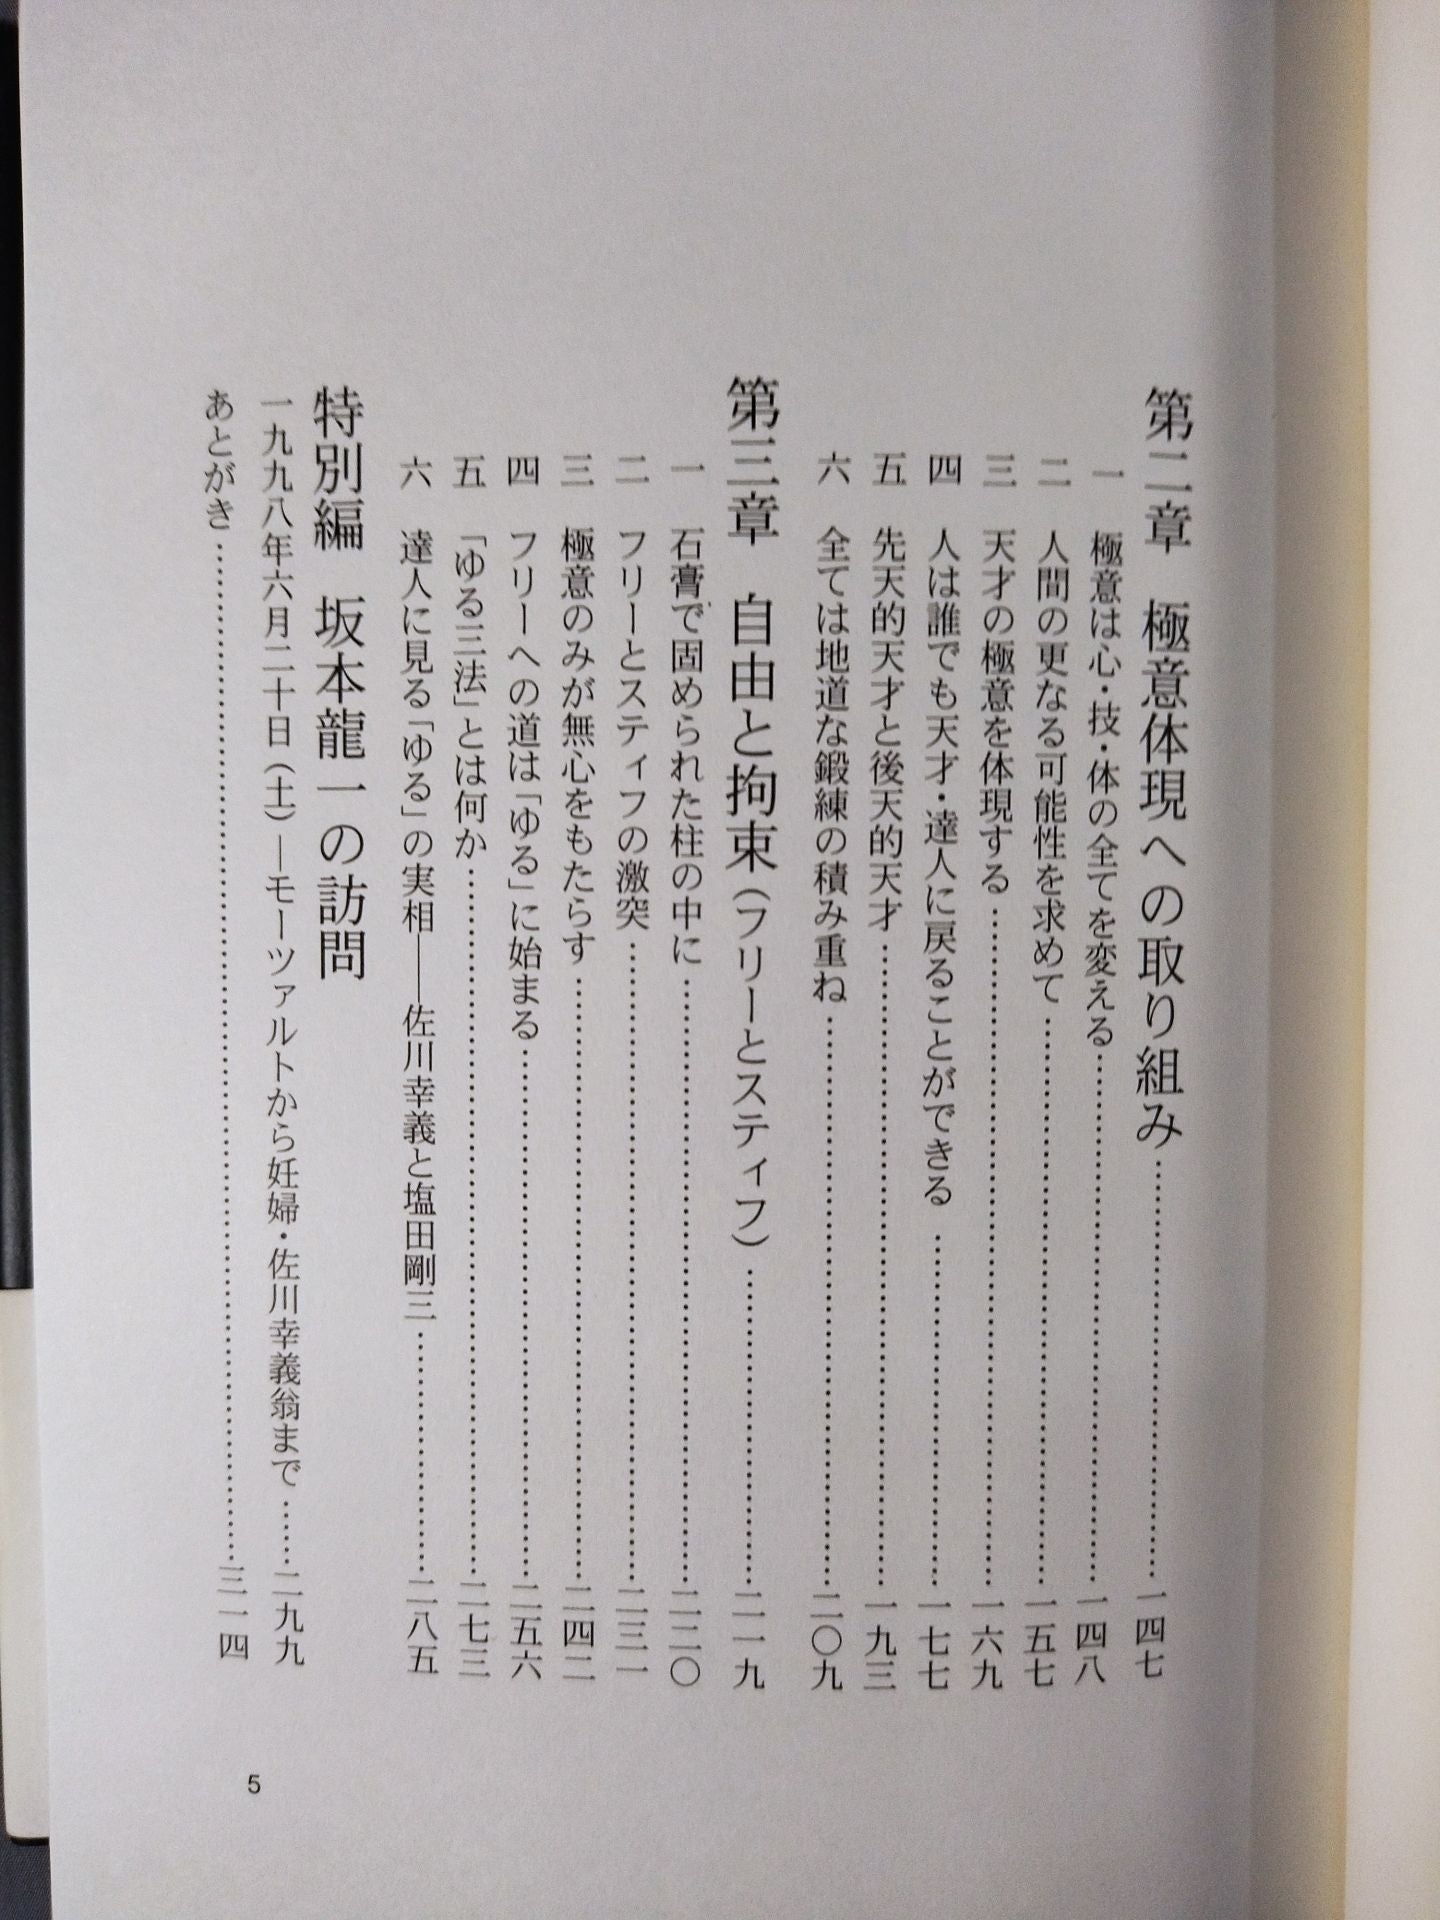 第二章　極意体現への取り組み……一四七
一　極意は心・技・体の全てを変える……一四八
二　人間の更なる可能性を求めて……一五七
三　天才の極意を体現する……一六九
四　人は誰でも天才・達人に戻ることができる……一七七
五　先天的天才と後天的天才……一九三
六　全ては地道な鍛練の積み重ね……二〇九
第三章　自由と拘束（フリーとスティフ）……二一九
一　石膏で固められた柱の中に……二二〇
二　フリーとスティフの激突……二三一
三　極意のみが無心をもたらす……二四二
四　フリーへの道は「ゆる」に始まる……二五六
五　「ゆる三法」とは何か……二七三
六　達人に見る「ゆる」の実相――佐川幸義と塩田剛三……二八五
特別編　坂本龍一の訪問
一九九八年六月二十日（土）―モーツァルトから妊婦・佐川幸義翁まで……二九九
あとがき……三一四
5